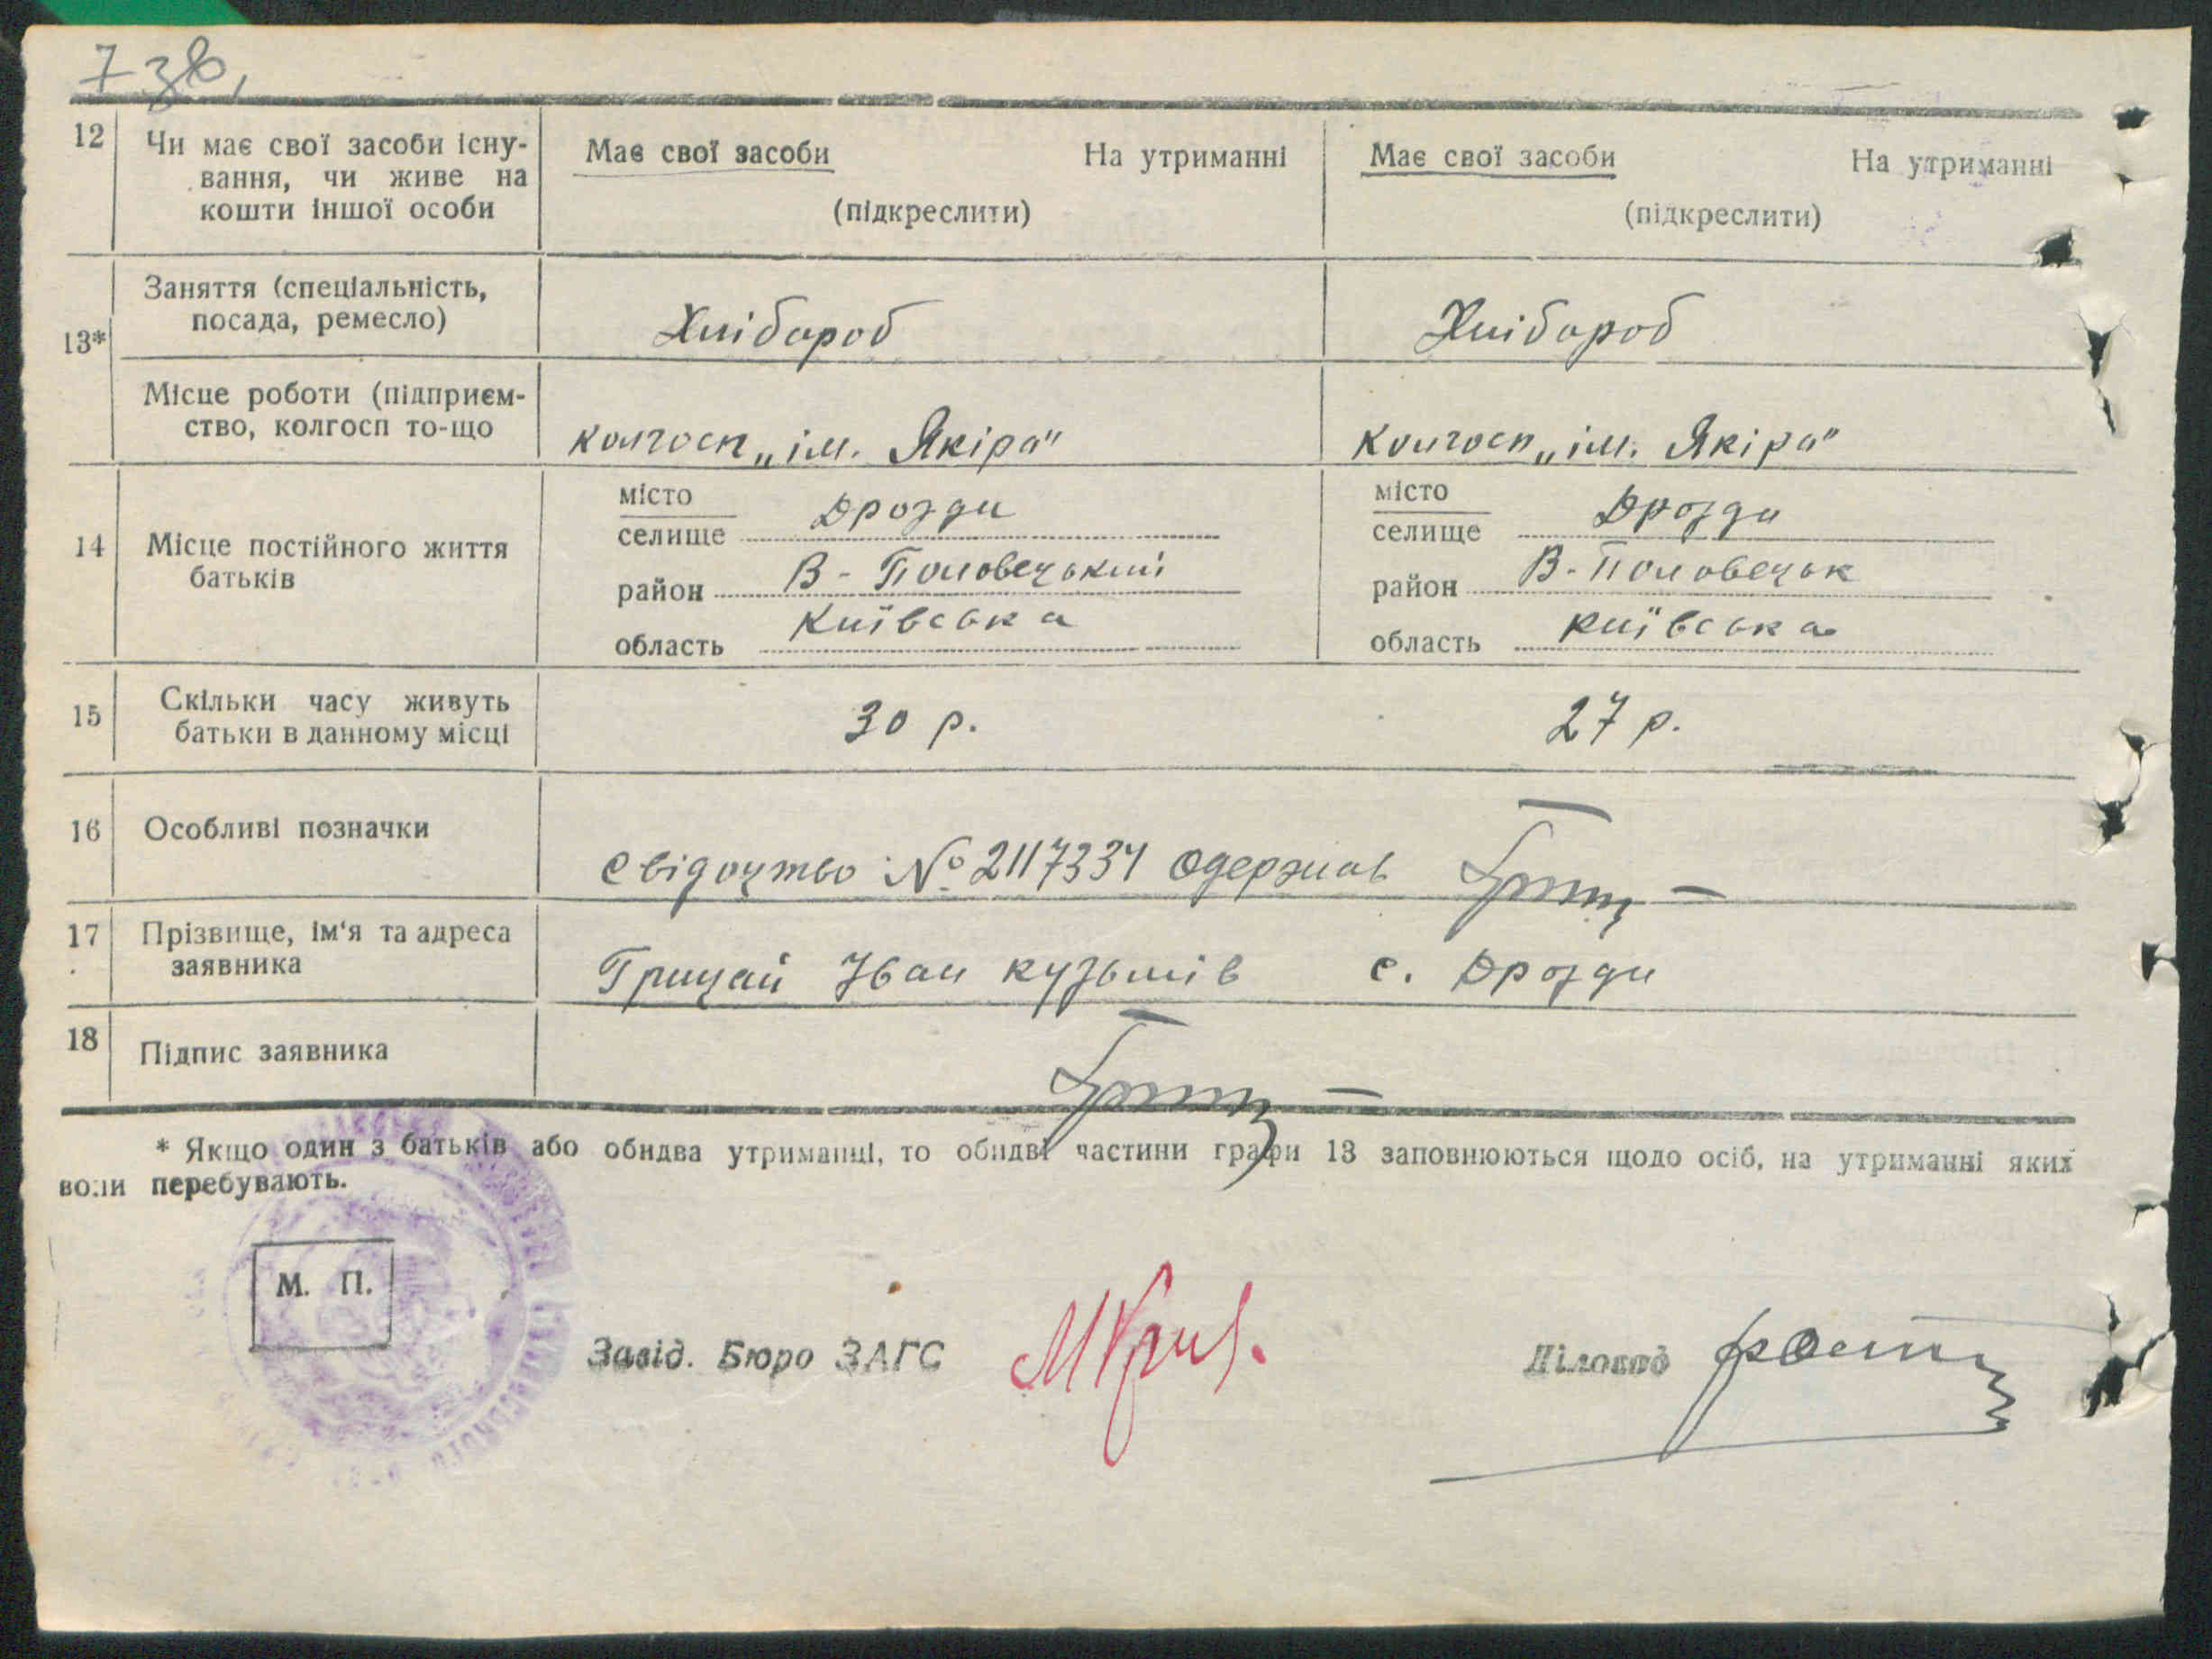 7 зв,
12 Чи має свої засоби існу- Має свої засоби На утриманні Має свої засоби На утриманні
вання, чи живе на
кошти іншої особи (підкреслити) (підкреслити)
Заняття (спеціальність,
посада, ремесло) Хлібороб Хлібороб
13*
Місце роботи (підприєм-
ство, колгосп то-що колгосп „ім. Якіра" колгосп „ім. Якіра"
місто місто
селище Дрозди селище Дрозди
14 Місце постійного життя
батьків район В-Половецький район В-Половецьк
область Київська область Київська
15 Скільки часу живуть
батьки в данному місці 30 р. 27 р.
16 Особливі позначки
Свідоцтво № 2117334 одержав
17 Прізвище, ім'я та адреса
заявника Грицай Іван Кузьмів с. Дрозди
18 Підпис заявника
* Якщо один з батьків або обидва утриманці, то обидві частини графи 13 заповнюються щодо осіб, на утриманні яких
вони перебувають.
М. П.
Завід. Бюро ЗАГС Діловод